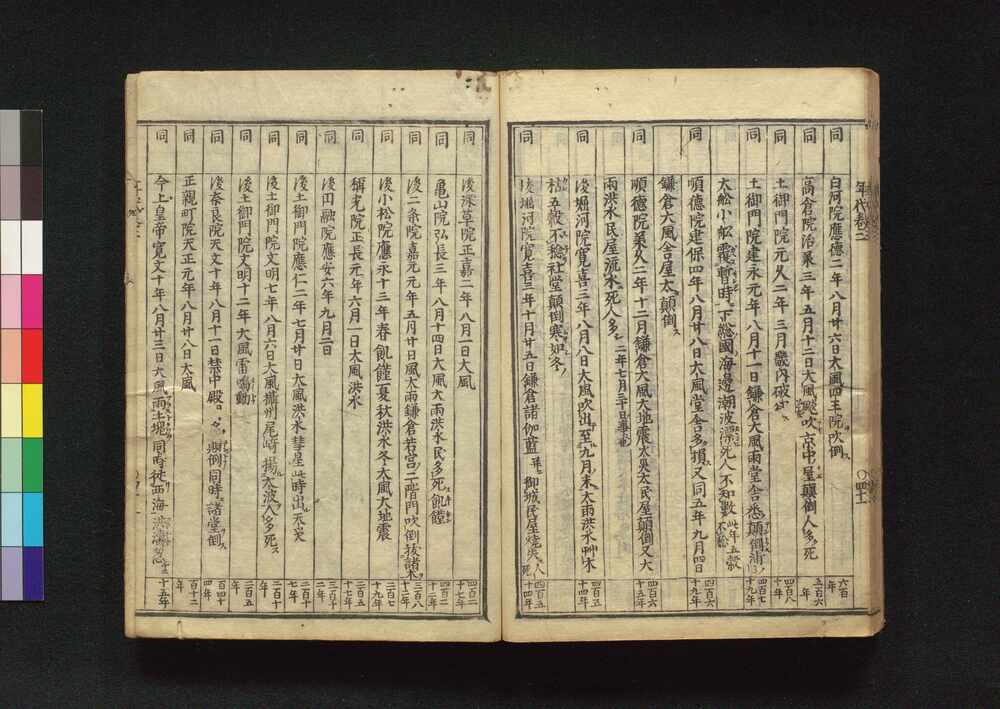 年代卷二
同 白河院應德二年八月廿六日大風四王院吹倒 六百年
同 高倉院治承三年五月十二日大風颷吹京中屋顛倒人多死 五百六年
同 土御門院元久二年三月畿內破 四百八十年
同 土御門院建永元年八月十一日鎌倉大風雨堂舍悉顛倒浦 四百七十九年
太舩小舩覆暫時下総國海邊潮波漂死人不知數此年五穀不
同 順德院建保四年八月廿八日大風堂舍多損又同五年九月四日 四百六十九年
鎌倉大風舍屋太顛倒
同 順德院承久二年十二月鎌倉大風大地震太旲太民屋顛倒又大 四百六十五年
雨洪水民屋流水死人多 二年七月三十日事也
同 後堀河院寬喜二年八月八日大風吹出至九月末大雨洪水艸木 四百五十四年
枯五穀不稔社堂顛倒寒如冬
同 後堀河院寬喜三年十月廿五日鎌倉諸伽藍並御城民屋燒失人死 四百五十四年
同 後深草院正嘉二年八月一日大風 四百二十七年
同 龜山院弘長三年八月十四日大風大雨洪水民多死飢饉 四百二十二年
同 後二条院嘉元元年五月廿日風太雨鎌倉若宮二階門吹倒拔諸木 三百八十三年
同 後小松院應永十三年春飢饉夏秋洪水冬大風大地震 二百七十九年
同 稱光院正長元年六月一日大風洪水 二百五十七年
同 後円融院應安六年九月二日 三百十二年
同 後土御門院應仁二年七月廿日大風洪水彗星此時出天災 二百十七年
同 後土御門院文明七年八月六日大風攝州尼崎揚大波人多死 二百十年
同 後土御門院文明十二年大風雷鳴動 二百五年
同 後奈良院天文十年八月十一日禁中殿日々顛倒同時諸堂倒 百四十四年
同 正親町院天正元年八月廿八日大風 百十二年
同 今上皇帝寬文十年八月廿三日大風雨土塊同時從西海 十五年